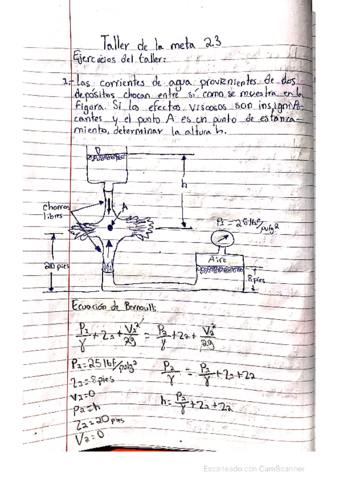 Taller de la meta 2.3
Ejercicios del taller:
1.- Las corrientes de agua provenientes de dos
depósitos chocan entre si como se muestra en la
figura. Si los efectos viscosos son insignifi-
cantes y el punto A es un punto de estanca-
miento, determinar la altura h.
h
Chorros
libres
A
P1 = 25 lbf/pulg²
Aire
20 pies
8 pies
Ecuación de Bernoulli:
P1/γ + Z1 + V1²/2g = P2/γ + Z2 + V2²/2g
P1 = 25 lbf/pulg²
Z1 = 8 pies
V1 = 0
P2 = h
Z2 = 20 pies
V2 = 0
P2/γ = P1/γ + Z1 + Z2
h = P1/γ + Z1 + Z2
Escaneado con CamScanner